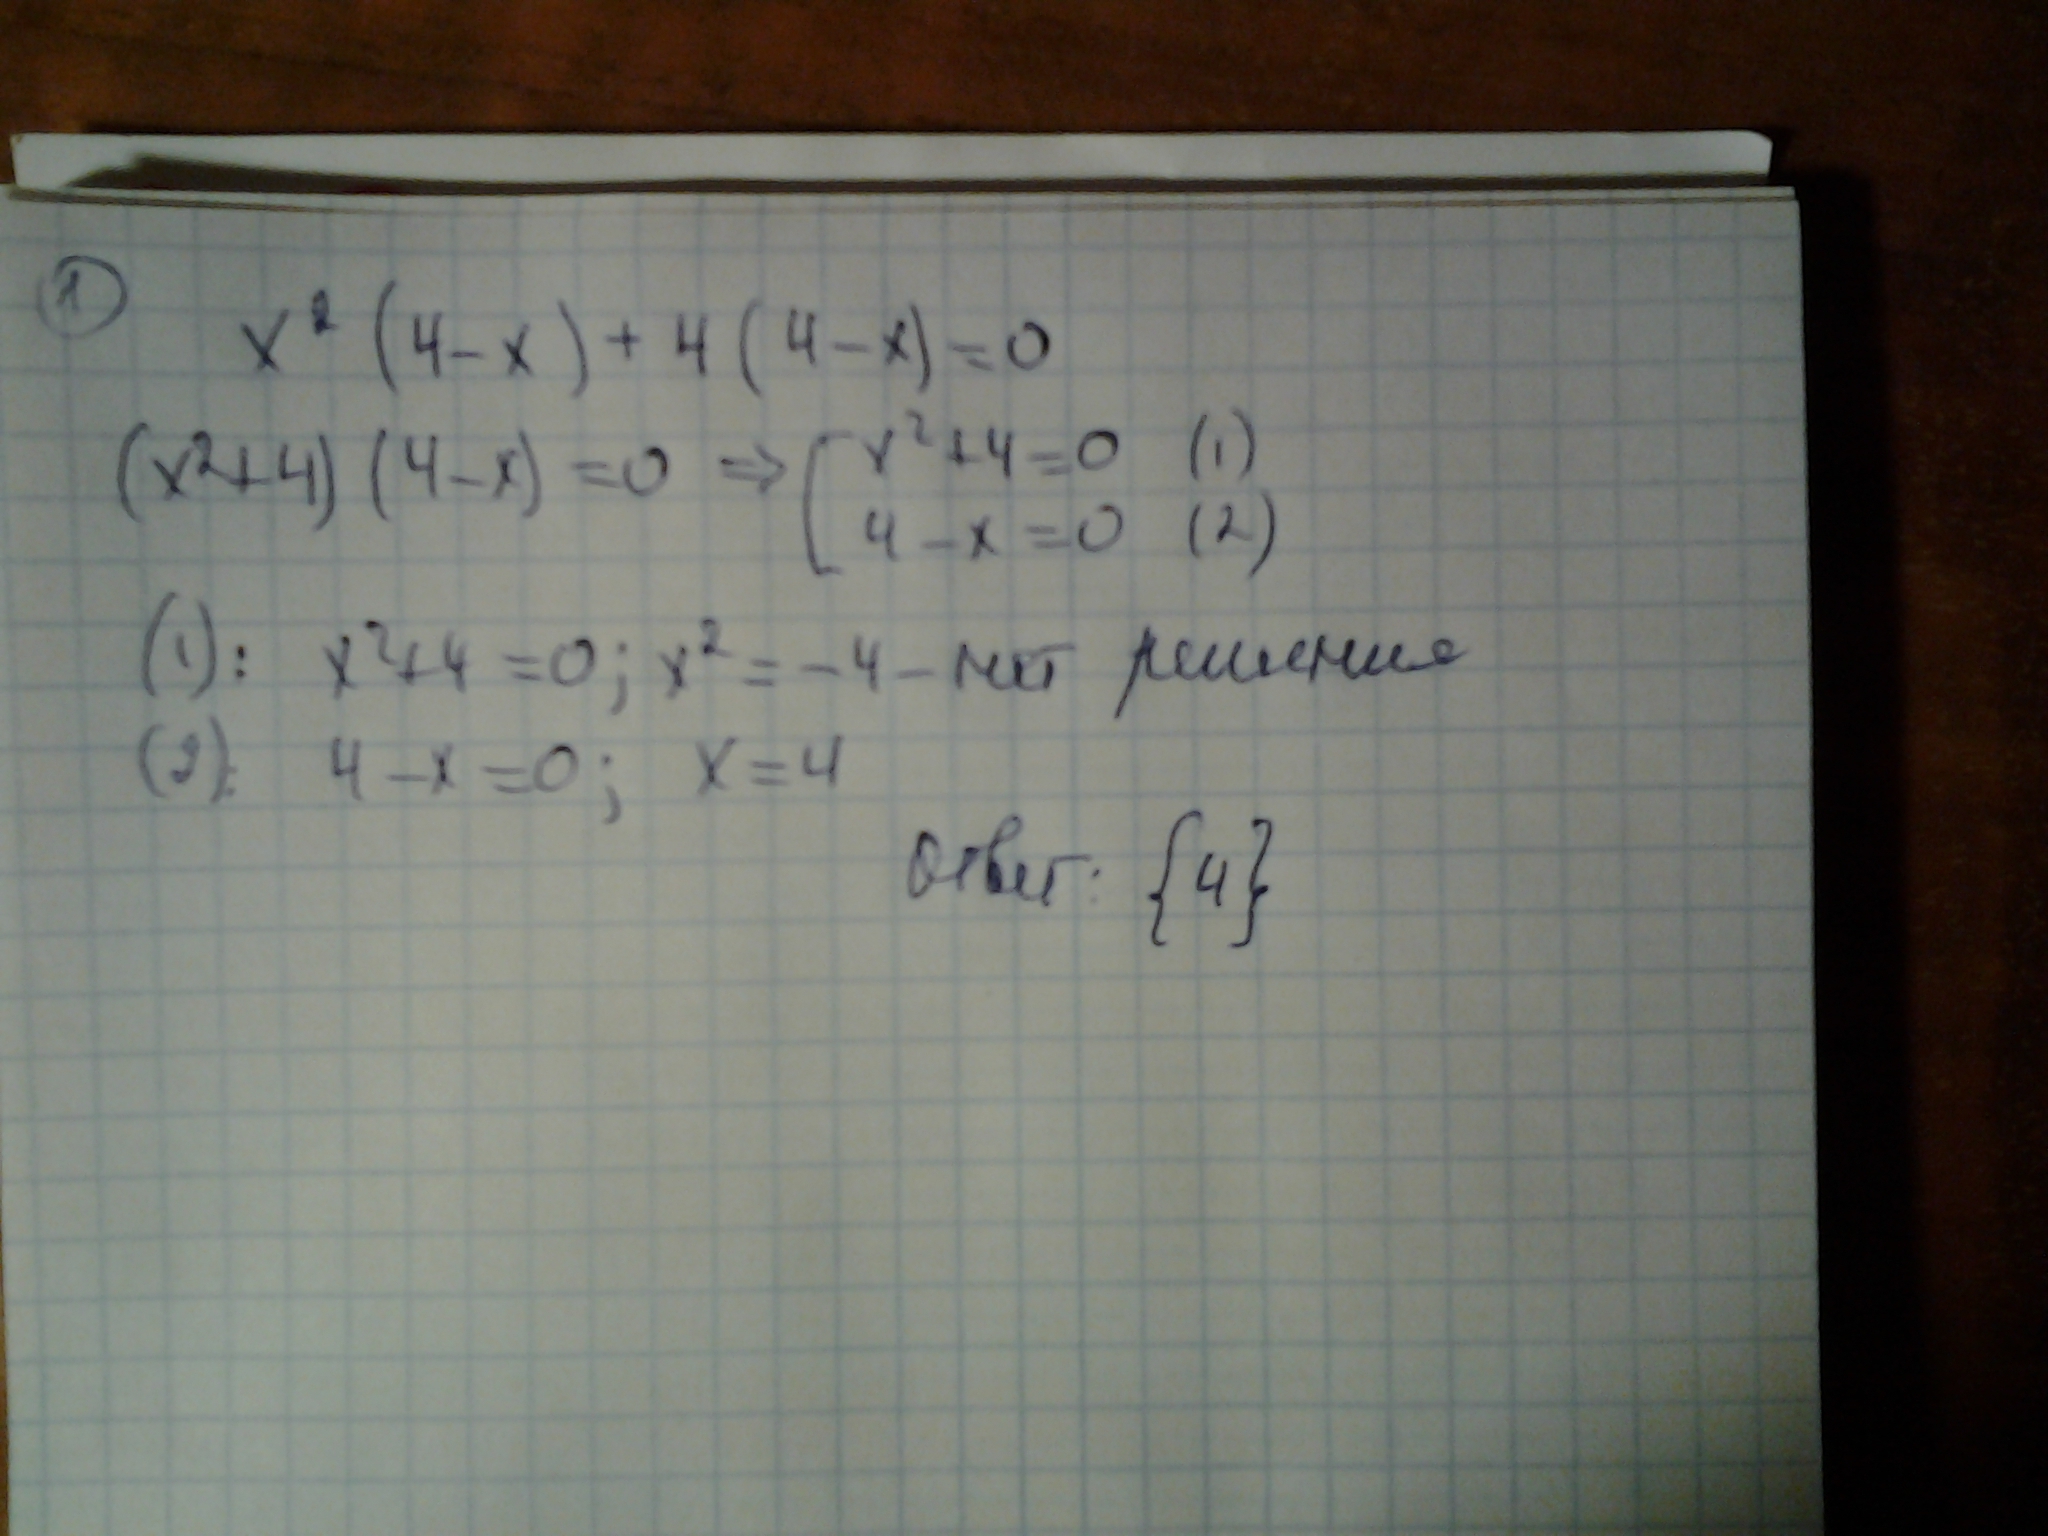 ①
x² (4-x) + 4 (4-x) = 0
(x²+4) (4-x) = 0 ⇒ [ x²+4=0 (1)
4-x=0 (2)
(1): x²+4=0; x²=-4 - нет решения
(2): 4-x=0; x=4
Ответ: {4}